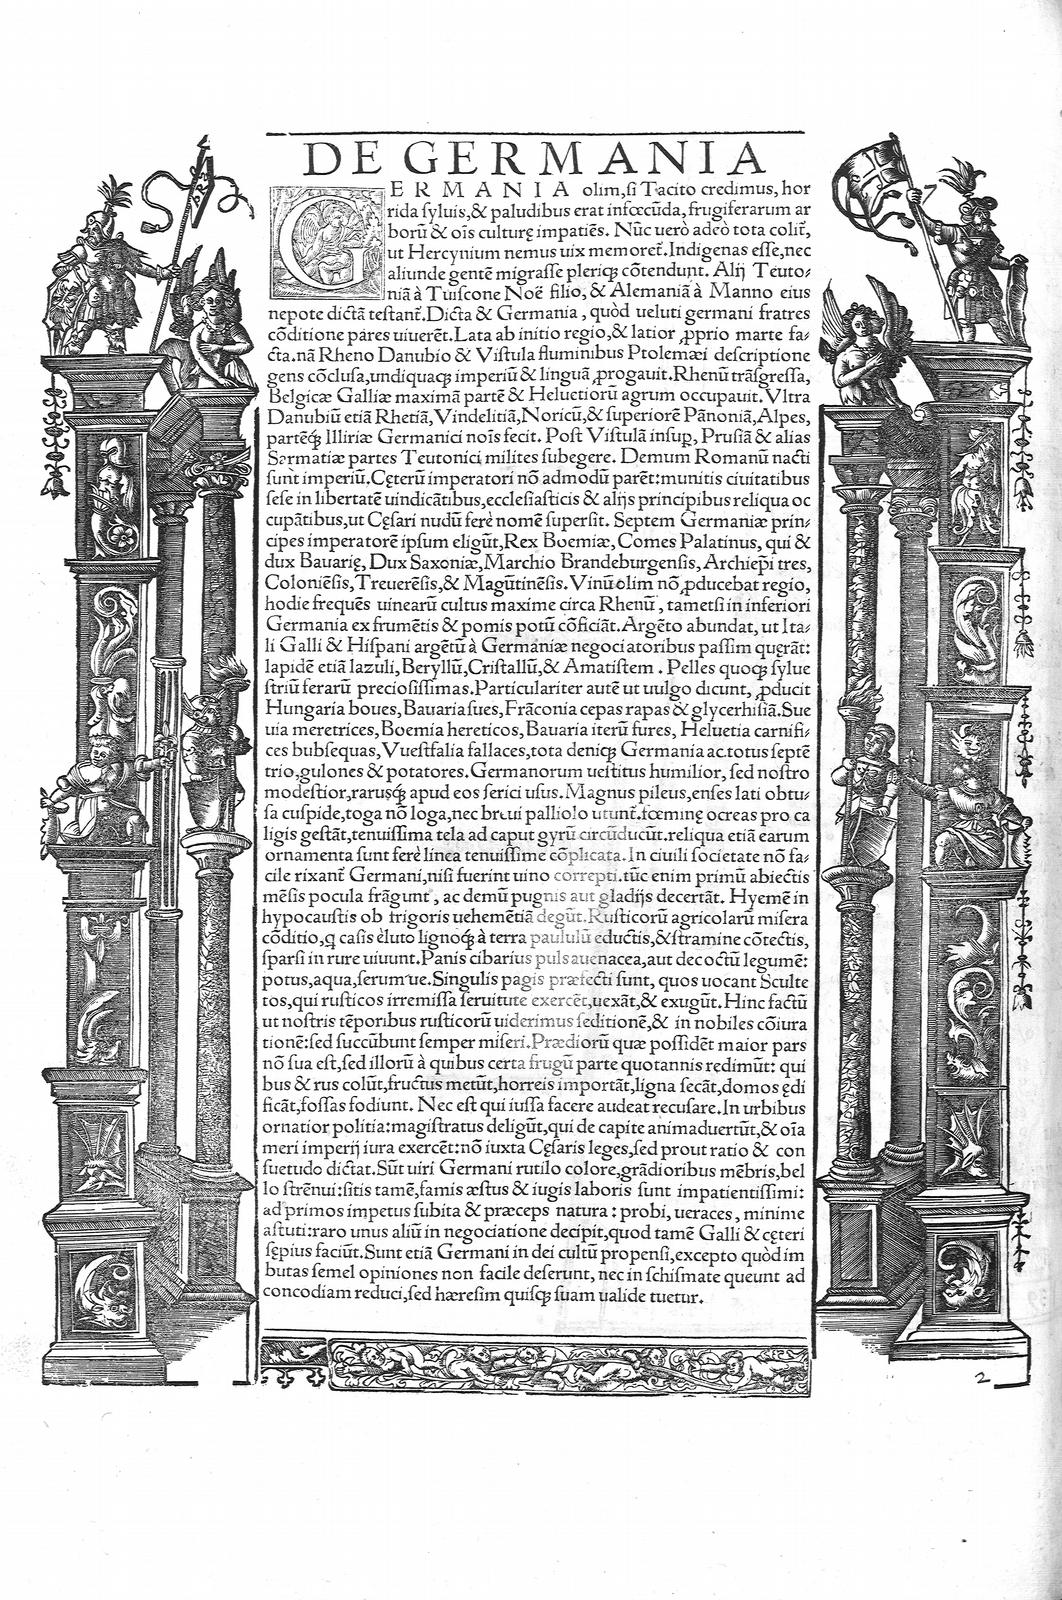 DE GERMANIA
GERMANIA olim, ſi Tacito credimus, hor
rida ſyluis, & paludibus erat infœcũda, frugiferarum ar
borũ & oĩs culturę impatiẽs. Nũc uerò adeò tota colit̃,
ut Hercynium nemus uix memoret̃. Indigenas eſſe, nec
aliunde gentẽ migraſſe pleriqꝫ cõtendunt. Alij Teuto⸗
niã à Tuiſcone Noë filio, & Alemaniã à Manno eius
nepote dictã teſtant̃. Dicta & Germania, quòd ueluti germani fratres
cõditione pares uiuerẽt. Lata ab initio regio, & latior ꝓprio marte fa⸗
cta. nã Rheno Danubio & Viſtula fluminibus Ptolemæi deſcriptione
gens cõcluſa, undiquaqꝫ imperiũ & linguã ꝓpagauit. Rhenũ trãſgreſſa,
Belgicæ Galliæ maximã partẽ & Heluetiorũ agrum occupauit. Vltra
Danubiũ etiã Rhetiã, Vindelitiã, Noricũ, & ſuperiorẽ Pãnoniã, Alpes,
partẽqꝫ Illiriæ Germanici noĩs fecit. Poſt Viſtulã inſup, Pruſiã & alias
Sarmatiæ partes Teutonici milites ſubegere. Demum Romanũ nacti
ſunt imperiũ, Cęterũ imperatori nõ admodũ parẽt: munitis ciuitatibus
ſeſe in libertatẽ uindicãtibus, eccleſiaſticis & alijs principibus reliqua oc
cupãtibus, ut Cęſari nudũ ferè nomẽ ſuperſit. Septem Germaniæ prin⸗
cipes imperatorẽ ipſum eligũt, Rex Boemiæ, Comes Palatinus, qui &
dux Bauarię, Dux Saxoniæ, Marchio Brandeburgenſis, Archiep̃i tres,
Coloniẽſis, Treuerẽſis, & Magũtinẽſis. Vinũ olim nõ ꝓducebat regio,
hodie frequẽs uinearũ cultus maxime circa Rhenũ, tametſi in inferiori
Germania ex frumẽtis & pomis potũ cõficiãt. Argẽto abundat, ut Ita⸗
li Galli & Hiſpani argẽtũ à Germaniæ negociatoribus paſſim quęrãt:
lapidẽ etiã lazuli, Beryllũ, Criſtallũ, & Amatiſtem. Pelles quoqꝫ ſylue
ſtriũ ferarũ precioſiſſimas. Particulariter autẽ ut uulgo dicunt, ꝓducit
Hungaria boues, Bauaria ſues, Frãconia cepas rapas & glycerhiſiã. Sue
uia meretrices, Boemia hereticos, Bauaria iterũ fures, Heluetia carnifi⸗
ces bubſequas, Vueſtfalia fallaces, tota deniqꝫ Germania ac totus ſeptẽ
trio, gulones & potatores. Germanorum ueſtitus humilior, ſed noſtro
modeſtior, rarusqꝫ apud eos ſerici uſus. Magnus pileus, enſes lati obtu⸗
ſa cuſpide, toga nõ lõga, nec breui palliolo utunt̃. fœminę ocreas pro ca
ligis geſtãt, tenuiſſima tela ad caput gyrũ circũducũt. reliqua etiã earum
ornamenta ſunt ferè linea tenuiſſime cõplicata. In ciuili ſocietate nõ fa⸗
cile rixant̃ Germani, niſi fuerint uino correpti. tũc enim primũ abiectis
mẽſis pocula frãgunt, ac demũ pugnis aut gladijs decertãt. Hyemẽ in
hypocauſtis ob frigoris uehemẽtiã degũt. Ruſticorũ agricolarũ miſera
cõditio, q caſis èluto lignoqꝫ à terra paululũ eductis, & ſtramine cõtectis,
ſparſi in rure uiuunt. Panis cibarius puls auenacea, aut decoctũ legumẽ:
potus, aqua, ſerumue. Singulis pagis præfecti ſunt, quos uocant Sculte
tos, qui ruſticos irremiſſa ſeruitute exercẽt, uexãt, & exugũt. Hinc factũ
ut noſtris tẽporibus ruſticorũ uiderimus ſeditionẽ, & in nobiles cõiura
tionẽ: ſed ſuccũbunt ſemper miſeri. Prædiorũ quæ poſſidẽt maior pars
nõ ſua eſt, ſed illorũ à quibus certa frugũ parte quotannis redimũt: qui
bus & rus colũt, fructus metũt, horreis importãt, ligna ſecãt, domos ędi
ficãt, foſſas fodiunt. Nec eſt qui iuſſa facere audeat recuſare. In urbibus
ornatior politia: magiſtratus deligũt, qui de capite animaduertũt, & oĩa
meri imperij iura exercẽt: nõ iuxta Cęſaris leges, ſed prout ratio & con
ſuetudo dictat. Sũt uiri Germani rutilo colore, grãdioribus mẽbris, bel
lo ſtrẽnui: ſitis tamẽ, famis æſtus & iugis laboris ſunt impatientiſſimi:
ad primos impetus ſubita & præceps natura: probi, ueraces, minime
aſtuti: raro unus aliũ in negociatione decipit, quod tamẽ Galli & cęteri
ſępius faciũt. Sunt etiã Germani in dei cultũ propenſi, excepto quòd im
butas ſemel opiniones non facile deſerunt, nec in ſchiſmate queunt ad
concodiam reduci, ſed hæreſim quiſqꝫ ſuam ualide tuetur.
2